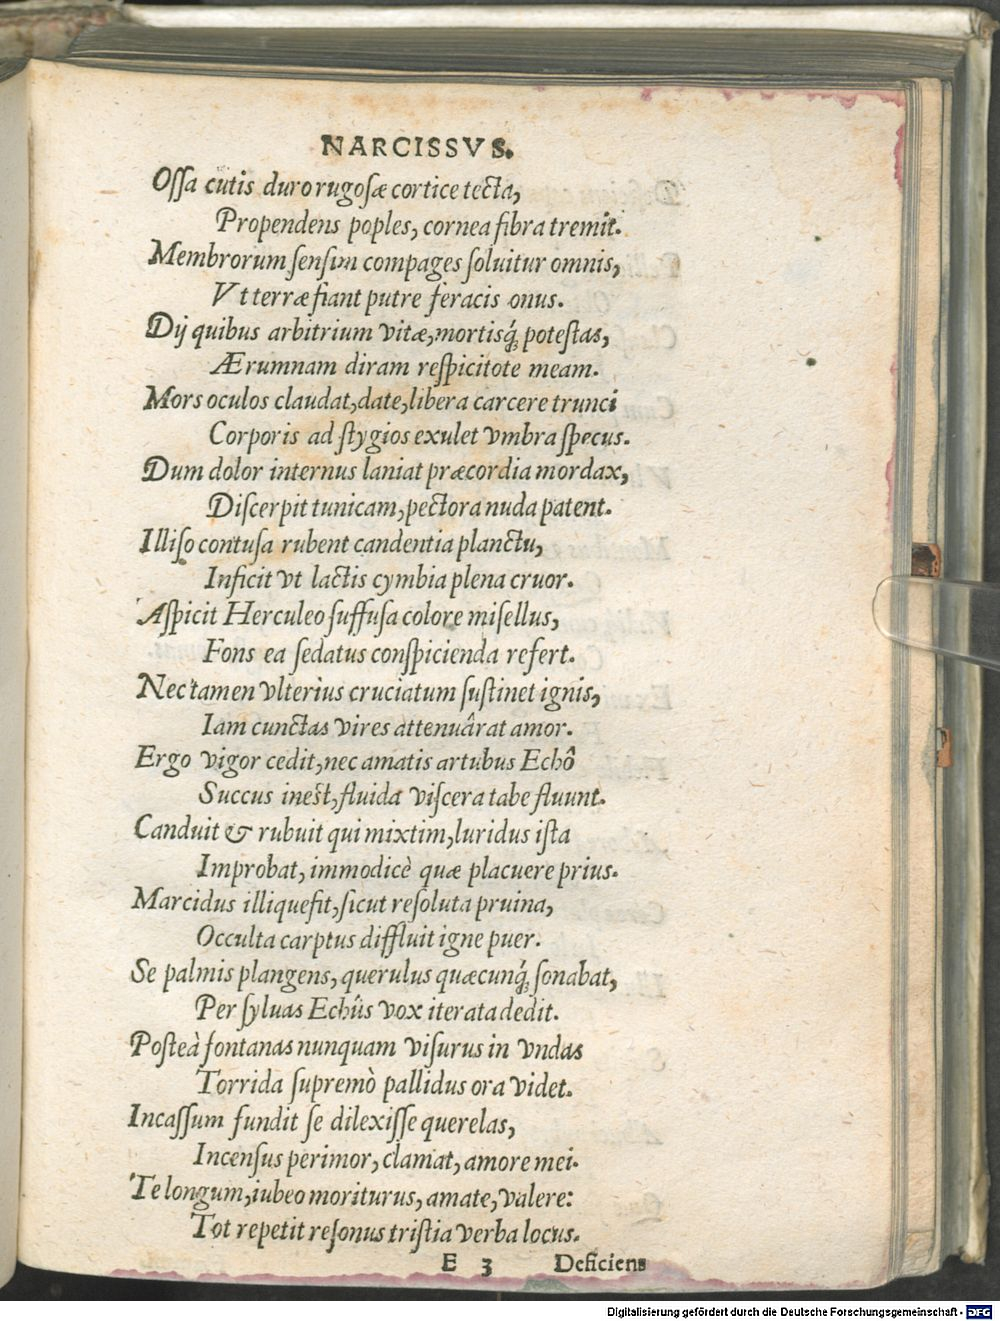 NARCISSVS.
Oſſa cutis duro rugoſæ cortice tecta,
Propendens poples, cornea fibra tremit.
Membrorum ſenſim compages ſoluitur omnis,
Vt terræ fiant putre feracis onus.
Dij quibus arbitrium vitæ, mortisq́; poteſtas,
Ærumnam diram reſpicitote meam.
Mors oculos claudat, date, libera carcere trunci
Corporis ad ſtygios exulet vmbra ſpecus.
Dum dolor internus laniat præcordia mordax,
Diſcerpit tunicam, pectora nuda patent.
Illiſo contuſa rubent candentia planctu,
Inficit vt lactis cymbia plena cruor.
Aſpicit Herculeo ſuffuſa colore miſellus,
Fons ea ſedatus conſpicienda refert.
Nec tamen vlterius cruciatum ſuſtinet ignis,
Iam cunctas vires attenuârat amor.
Ergo vigor cedit, nec amatis artubus Echô
Succus ineſt, fluida viſcera tabe fluunt.
Canduit & rubuit qui mixtim, luridus iſta
Improbat, immodicè quæ placuere prius.
Marcidus illiquefit, ſicut reſoluta pruina,
Occulta carptus diffluit igne puer.
Se palmis plangens, querulus quæcunq́; ſonabat,
Per ſyluas Echûs vox iterata dedit.
Poſteà fontanas nunquam viſurus in vndas
Torrida ſupremò pallidus ora videt.
Incaſſum fundit ſe dilexiſſe querelas,
Incenſus perimor, clamat, amore mei.
Te longum, iubeo moriturus, amate, valere:
Tot repetit reſonus triſtia verba locus.
E 3 Deficiens
Digitalisierung gefördert durch die Deutsche Forschungsgemeinschaft - DFG